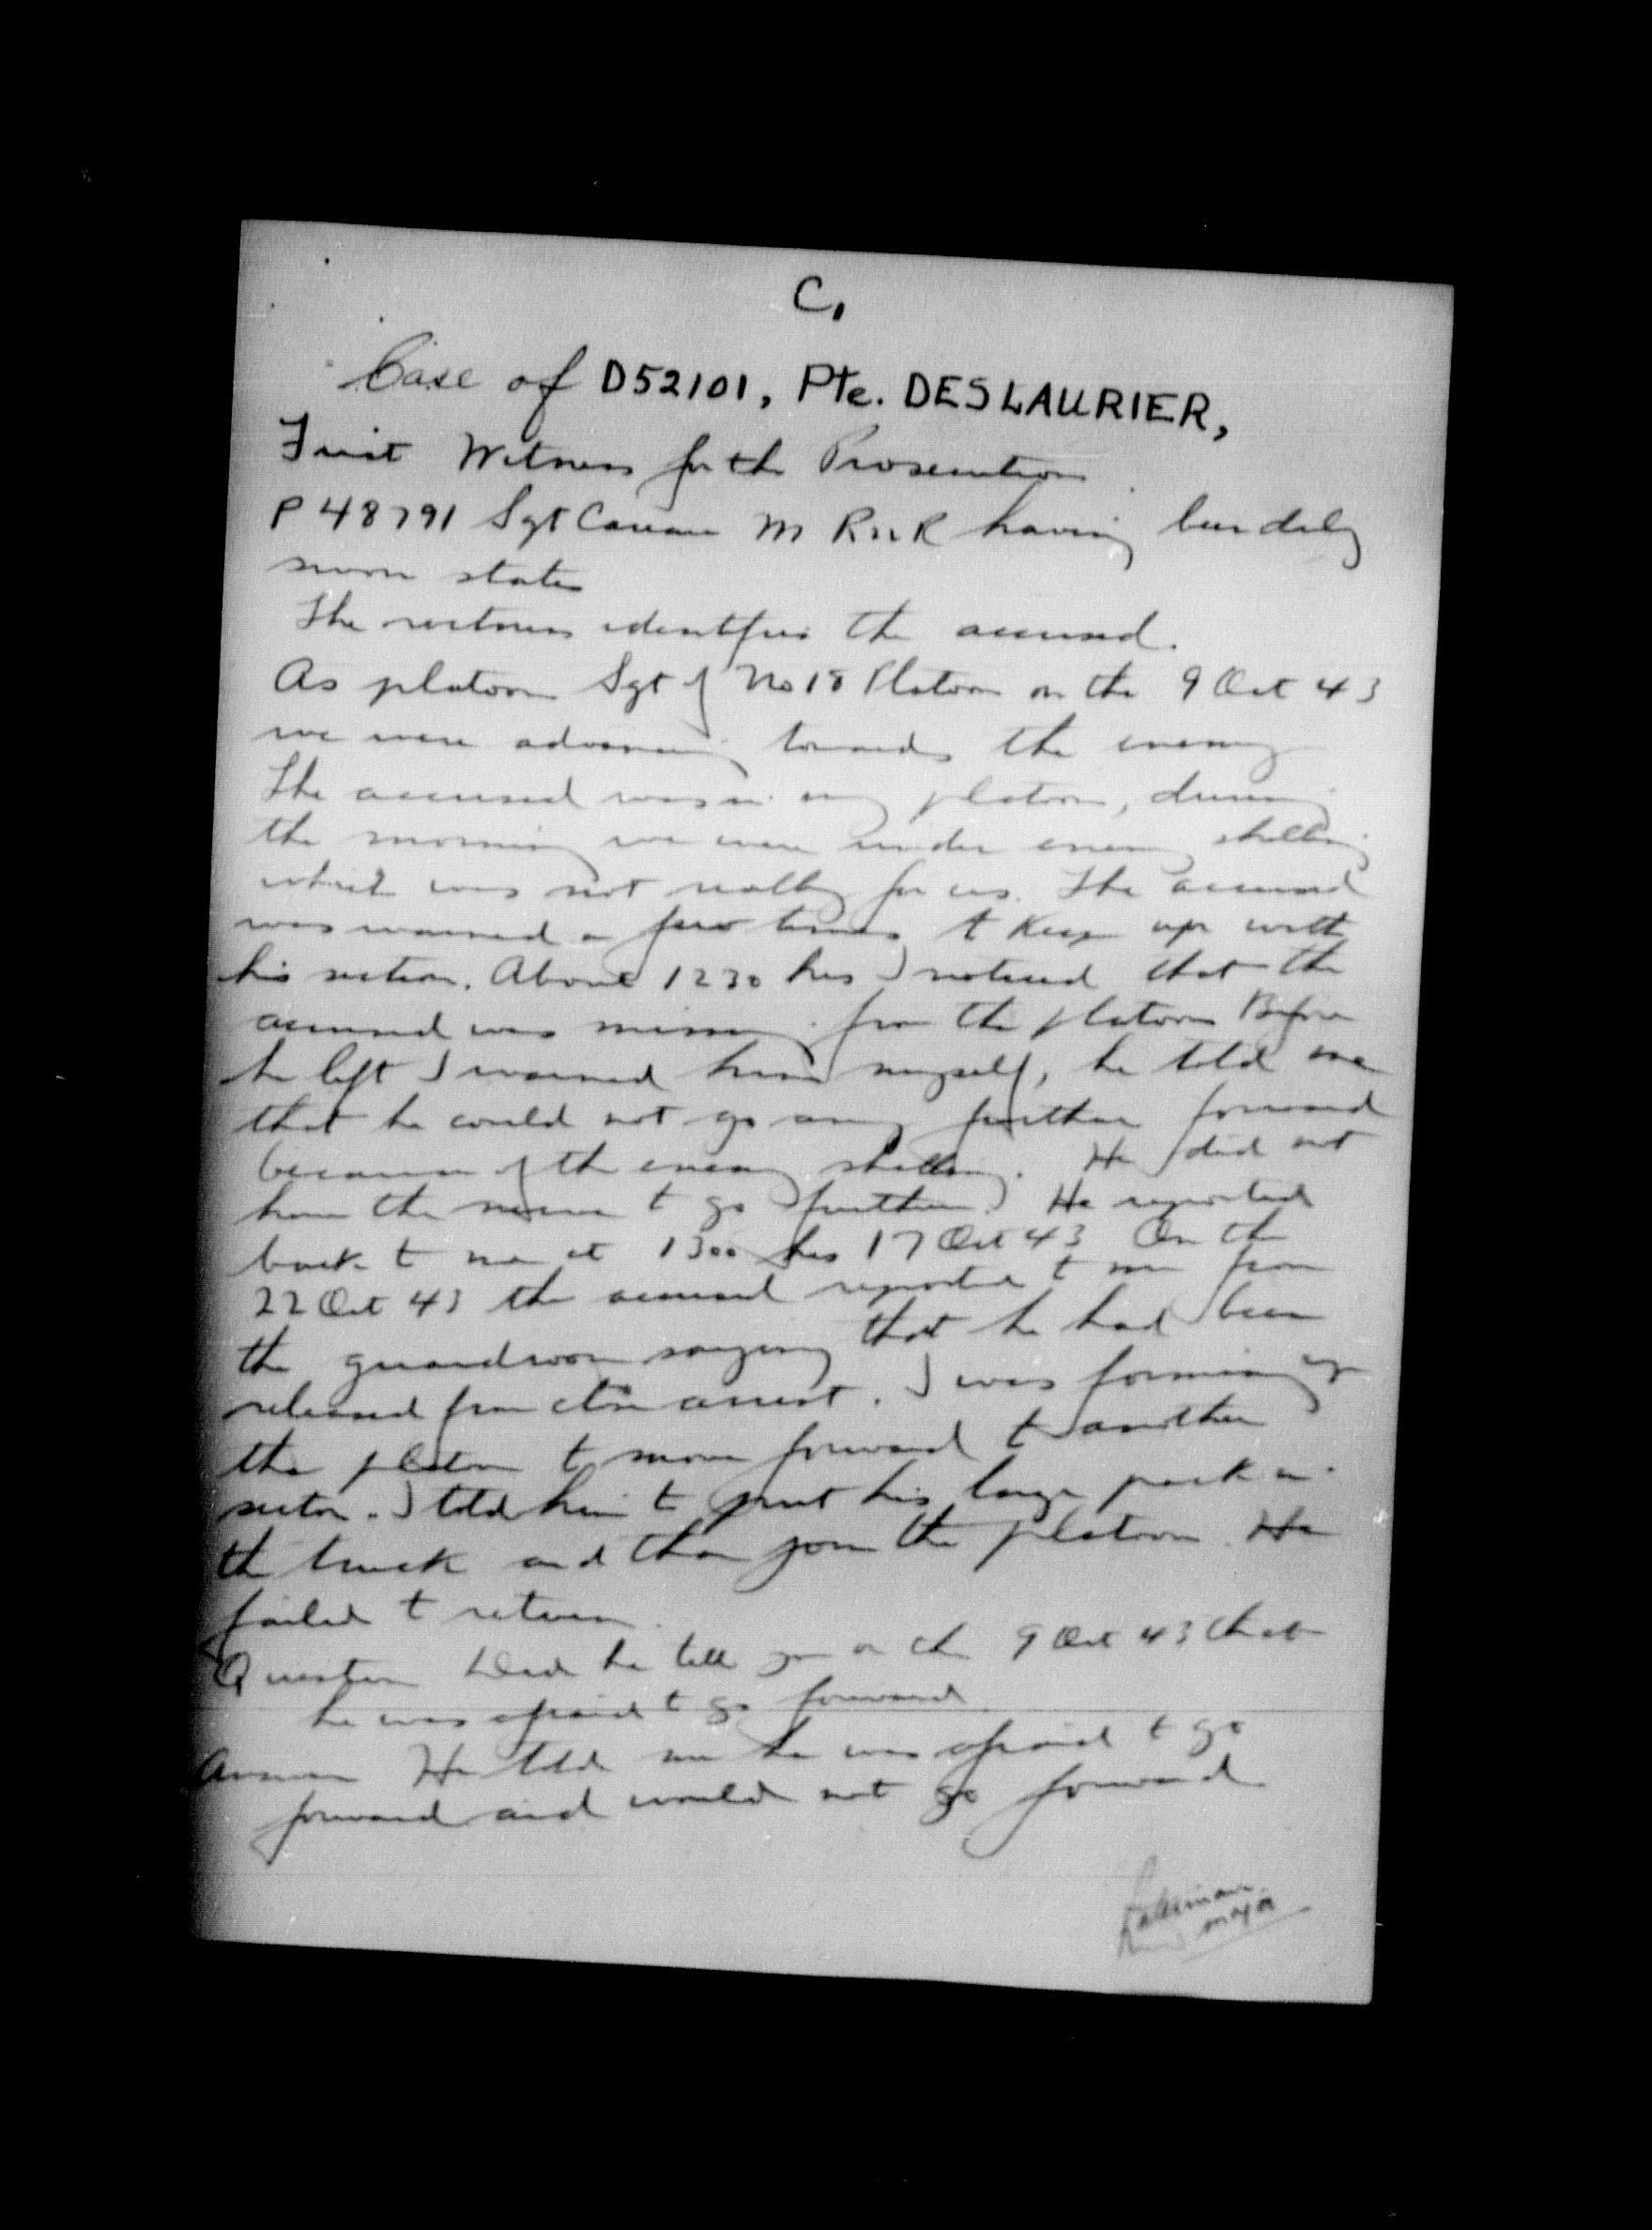 C,
Case of D52101, Pte. DESLAURIER,
First Witness for the Prosecution
P 48791 Sgt M R22R having been duly
sworn states
The witness identifies the accused.
As platoon Sgt of No 18 Platoon on the 9 Oct 43
we were advancing towards the enemy
The accused was in my platoon, during
the morning we were under enemy shelling
which was not really for us. The accused
was warned a few times to keep up with
his section. About 1230 hrs I noticed that the
accused was missing from the platoon Before
he left I warned him myself, he told me
that he could not go any further forward
because of the enemy shelling. He did not
have the nerve to go further. He reported
back to me at 1300 hrs 17 Oct 43 On the
22 Oct 43 the accused reported to me from
the guardroom saying that he had been
released from close arrest. I was forming up
the platoon to move forward to another
sector. I told him to put his large pack in
the truck and then join the platoon. He
failed to return.
Question Did he tell you on the 9 Oct 43 that
he was afraid to go forward
Answer He told me he was afraid to go
forward and would not go forward
Major